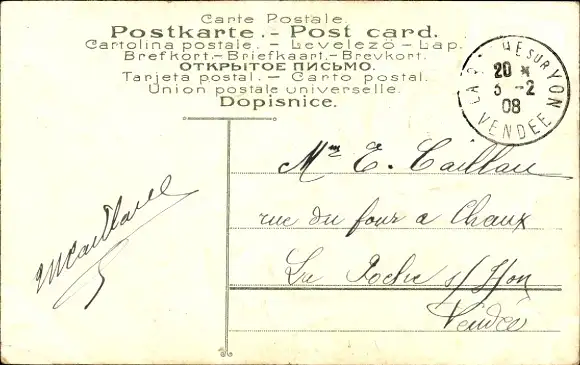 Carte Postale.
Postkarte. - Post card.
Cartolina postale. - Levelezö - Lap.
Brefkort. - Briefkaart. - Brevkort.
ОТКРЫТОЕ ПИСЬМО.
Tarjeta postal. - Carto postal.
Union postale universelle.
Dopisnice.
LA ROCHE SUR YON
20 *
3 - 2
08
VENDÉE
Mme E. Caillau
rue du four a Chaux
La Roche s/Yon
Vendée